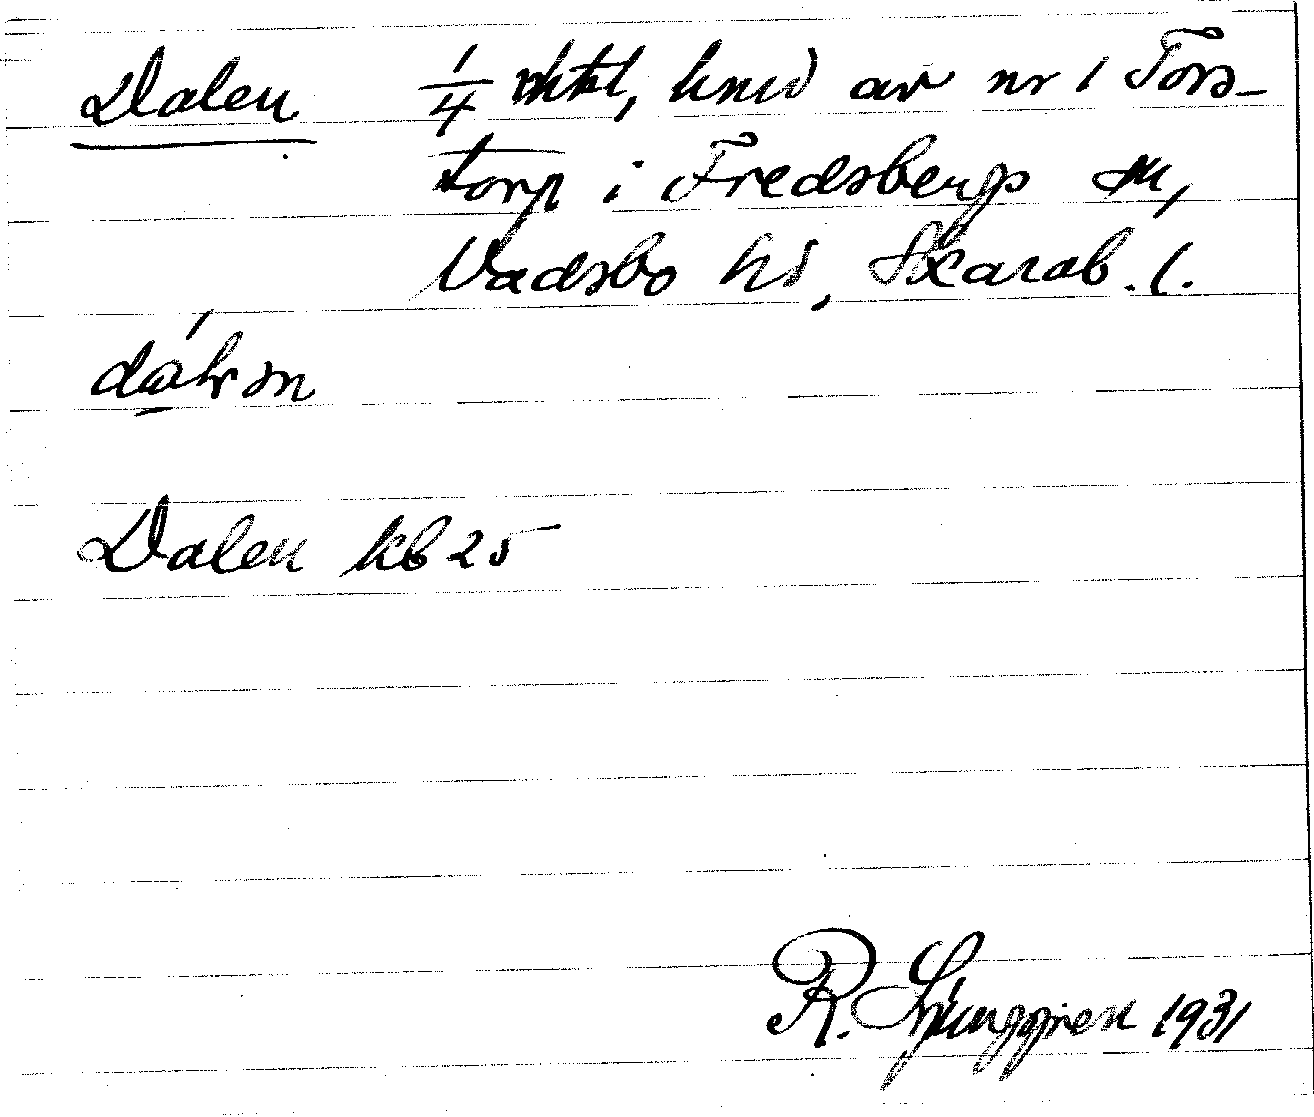 Dalen 1/4 mtl, hmd av nr 1 Tors-
torp i Fredsbergs sn,
Vadsbo hd, Skarab. l.
Dalen kb 25
R. Ljunggren 1931